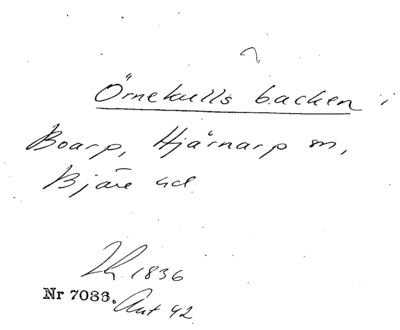 Örnekulls backen i
Boarp, Hjärnarp sn,
Bjäre hd
1836
Nr 7083. Ant 42